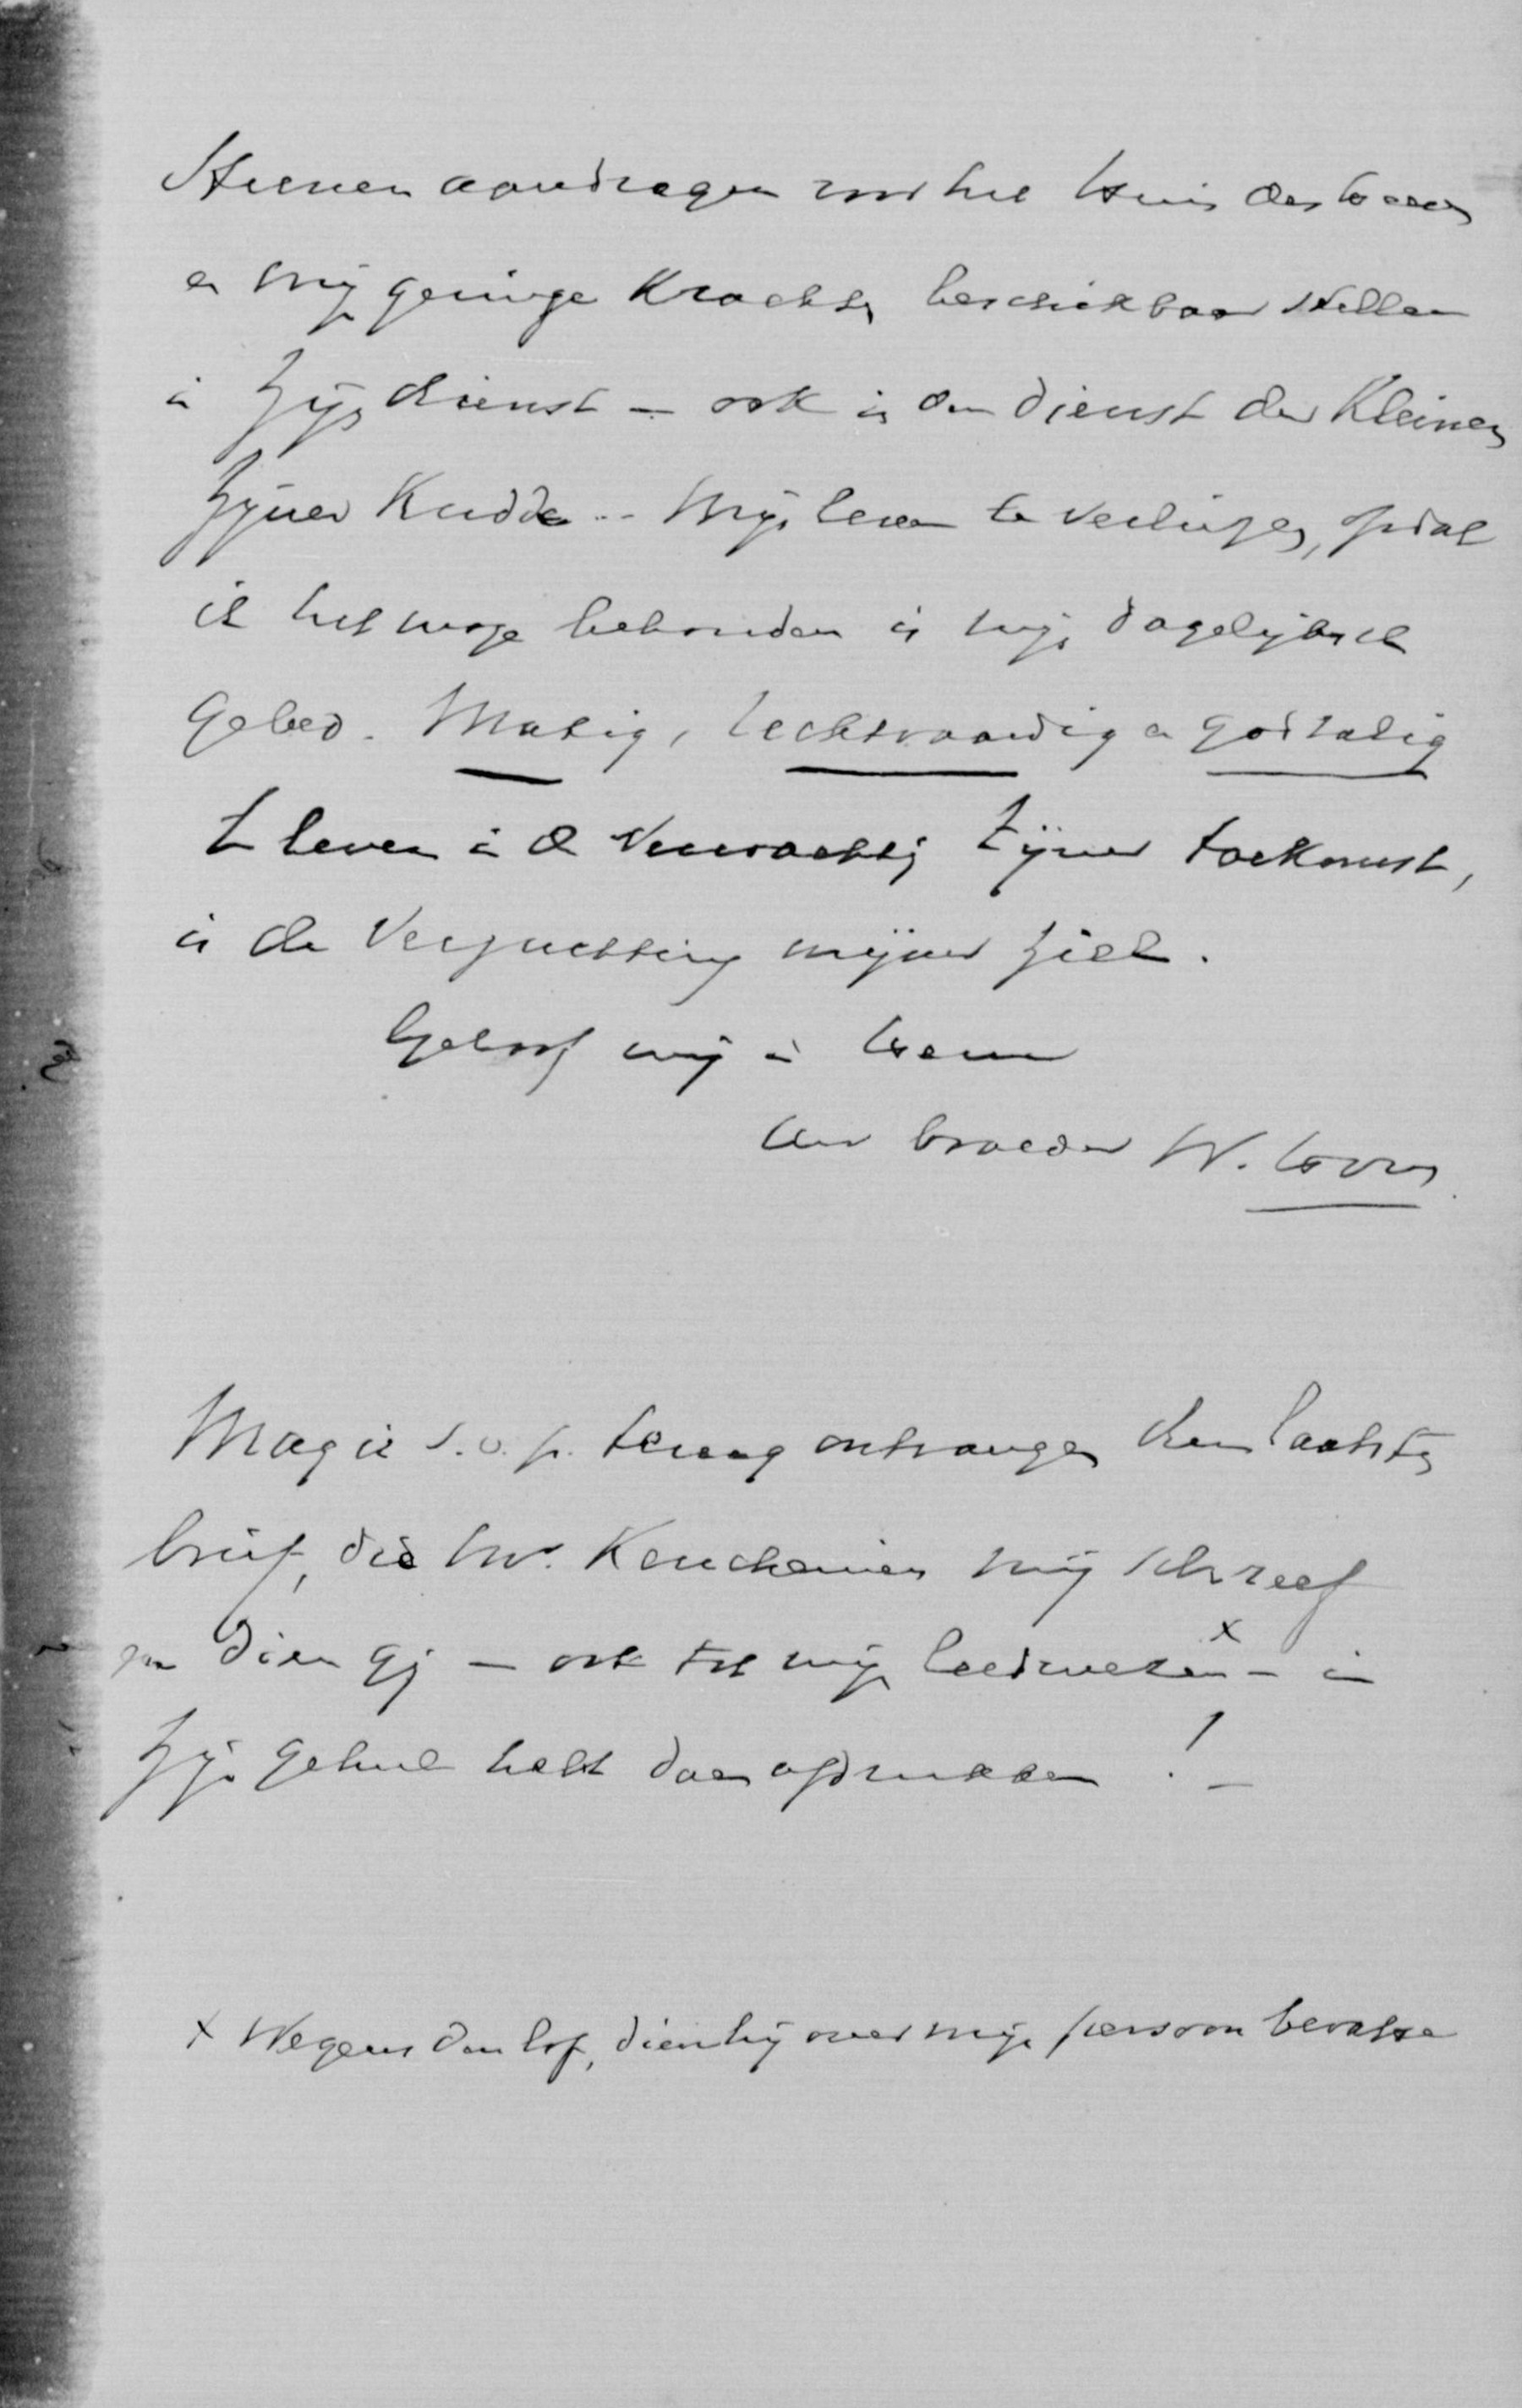 Steenen aandragen voor het Huis des Heeren
en mijn geringe Krachten beschikbaar stellen
in Zijn dienst – ook in den dienst der Kleinen
Zijner Kudde .. Mijn leven te verliezen, opdat
ik het moge behouden is mijn dagelijksch
Gebed. Matig, rechtvaardig en godzalig
te leven in de Verwachting Zijner toekomst,
is de Verzuchting mijner ziel.
Geloof mij in Hem
Uw broeder W. Hovy
Mag ik s.v.p. terug ontvangen den laatsten
brief, die Mr. Keuchenius mij schreef
en dien gij – ook tot mijn leedwezen x – in
zijn geheel hebt doen afdrukken ! –
x Wegens den lof, dien hij over mijn persoon bevatte